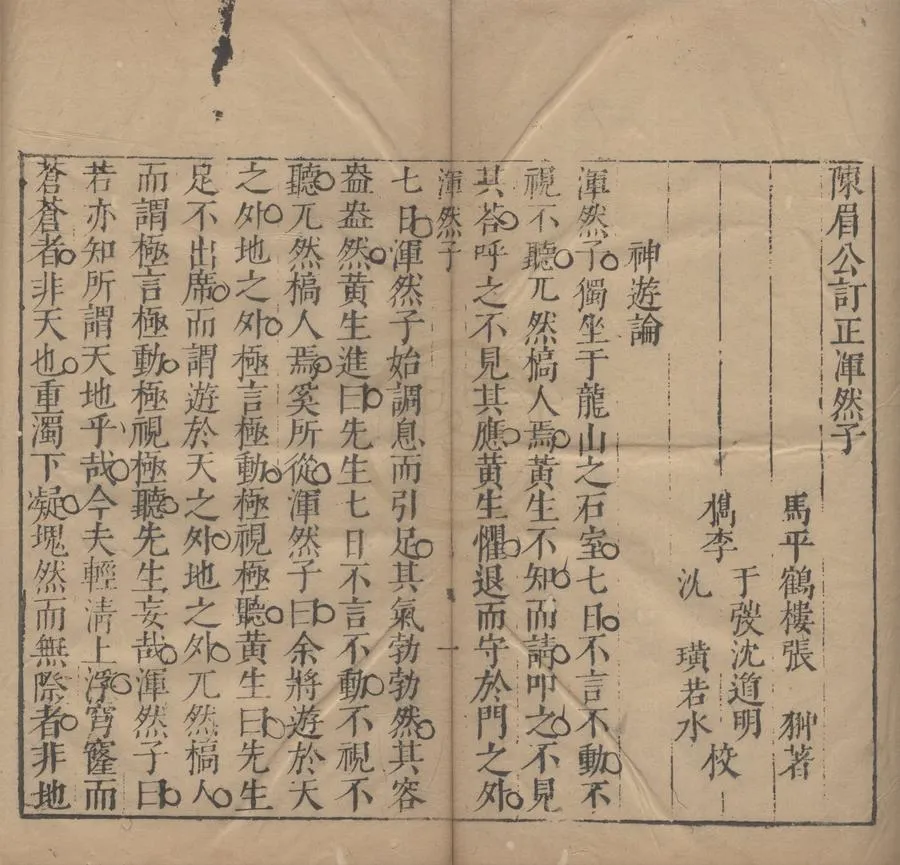 陳眉公訂正渾然子
馬平鶴樓張 翀著
于發沈道明
檇李 校
沈 璜若水
神遊論
渾然子獨坐于龍山之石室七日不言不動不
視不聽兀然槁人焉黃生不知而請叩之不見
其荅呼之不見其應黃生懼退而守於門之外
渾然子
一
七日渾然子始調息而引足其氣勃勃然其容
盎盎然黃生進曰先生七日不言不動不視不
聽兀然槁人焉奚所從渾然子曰余將遊於天
之外地之外極言極動極視極聽黃生曰先生
足不出席而謂遊於天之外地之外兀然槁人
而謂極言極動極視極聽先生妄哉渾然子曰
若亦知所謂天地乎哉今夫輕清上浮穹窿而
蒼蒼者非天也重濁下凝塊然而無際者非地